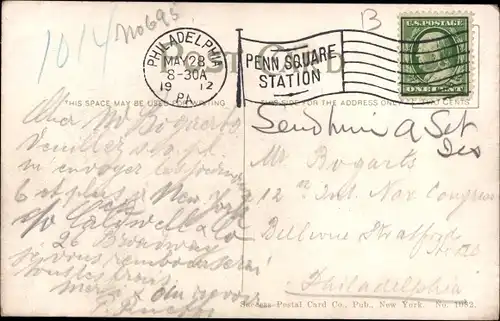 1014
No 695
B
PHILADELPHIA
MAY 28
8-30A
19 12
PA.
PENN SQUARE
STATION
U.S. POSTAGE
ONE CENT
Post Card
THIS SPACE MAY BE USED FOR WRITING
THIS SIDE FOR THE ADDRESS ONLY
TWO CENTS
Send him a Set
Mr Bogarts
12th Int. Nav. Congress
Bellevue Stratford
Hotel
Philadelphia
Cher Mr Bogaerts
Veuillez s.v.p.
m'envoyer les
6 et plus a New York
c/o Caldwell & Co
26 Broadway
je vous rembourserai
tous les frais
merci & au revoir
Success Postal Card Co., Pub., New York. No. 1082.